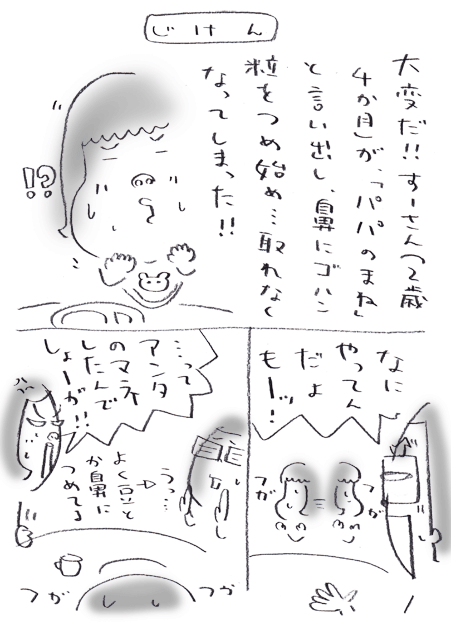 じけん
大変だ!!すーさん(2歳
4か月)が、「パパのまね」
と言い出し、鼻にゴハン
粒をつめ始め…取れなく
なってしまった!!
!?
なに
やってん
だよ
もーッ!
つが
つが
…って
アンタ
のマネ
したんで
しょーが!!
うっ…
よく豆と
か鼻に
つめてる
つが
つが